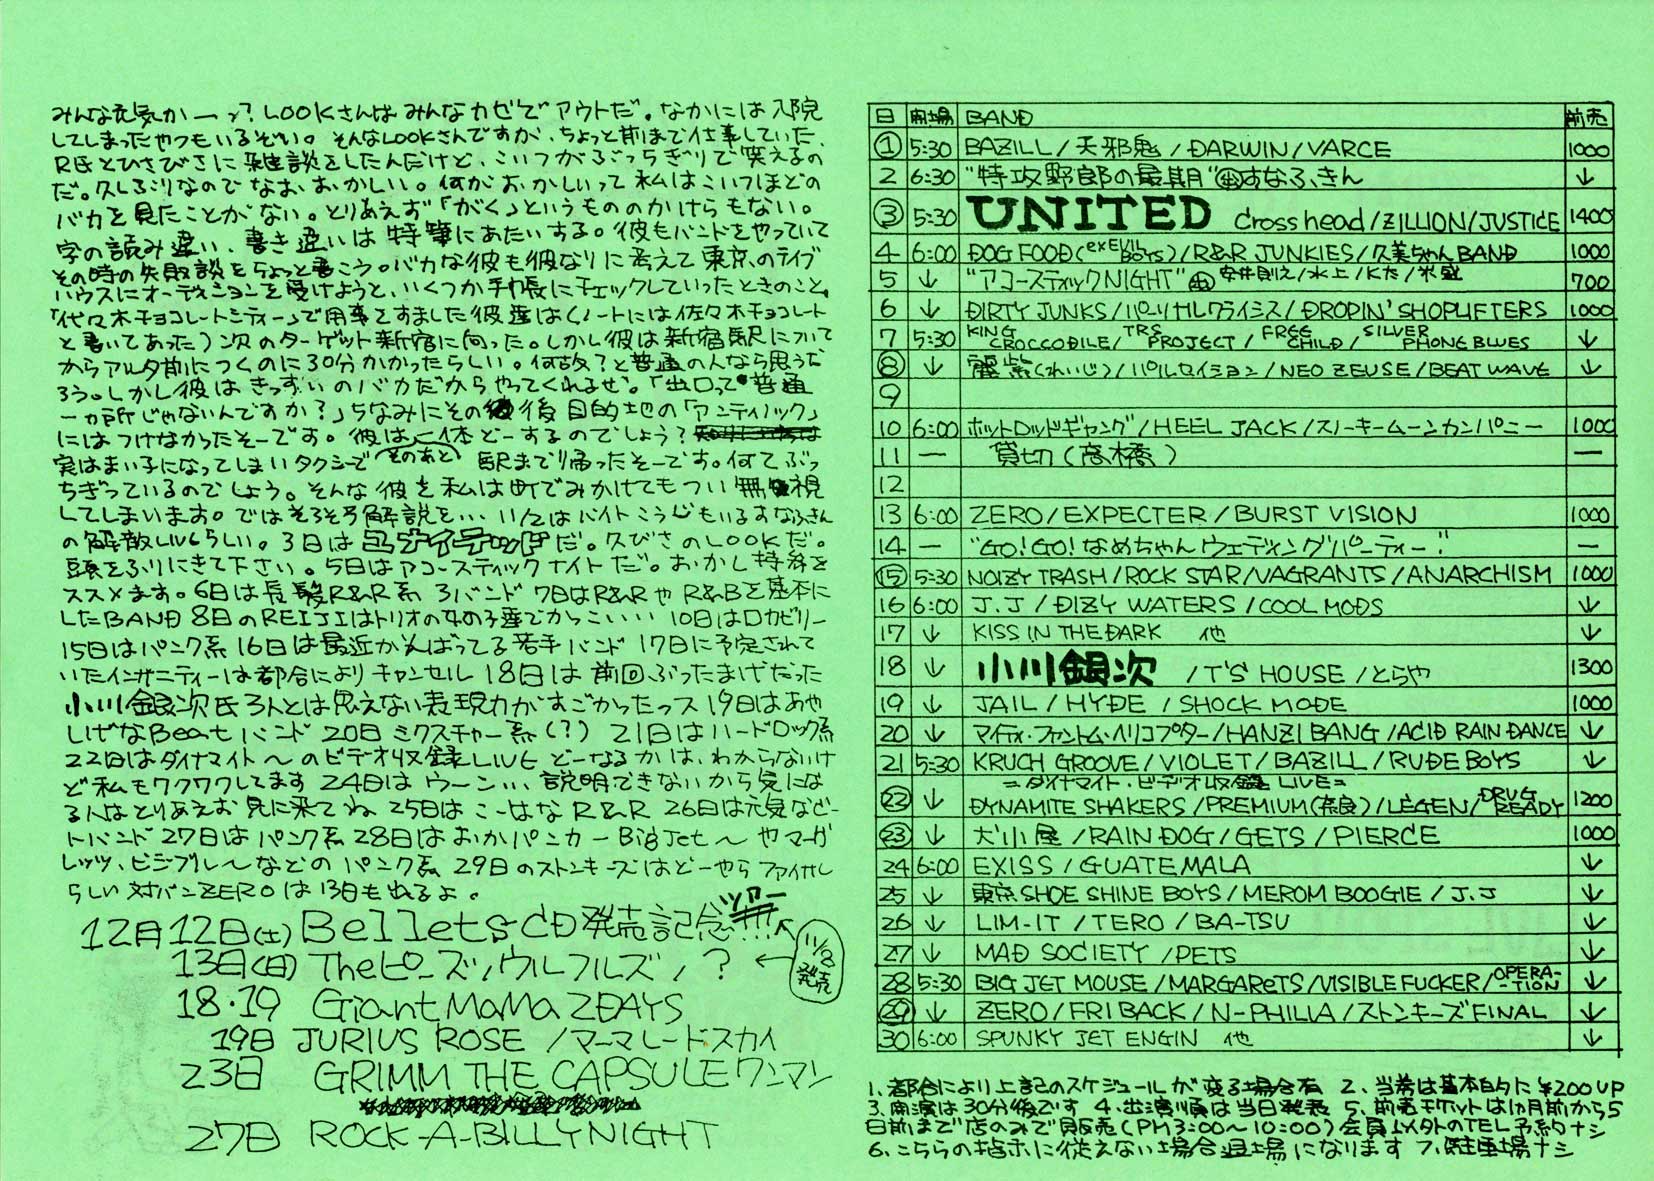 みんな元気かーっ？LOOKさんはみんなカゼでアウトだ。なかには入院
してしまったやつもいるぞい。そんなLOOKさんですが、ちょっと前まで仕事していた
R氏とひさびさに雑談をしたんだけど、こいつがぶっちぎりで笑えるの
だ。久しぶりなのでなおおかしい。何がおかしいって私はこいつほどの
バカを見たことがない。とりあえず「がく」というもののかけらもない。
字の読み違い、書き違いは特筆にあたいする。彼もバンドをやっていて
その時の失敗談をちょっと書こう。バカな彼も彼なりに考えて東京のライブ
ハウスにオーディションを受けようと、いくつか手帳にチェックしていったときのこと。
「代々木チョコレートシティー」で用事をすました彼達は(ノートには佐々木チョコレート
と書いてあった)次のターゲット新宿に向った。しかし彼は新宿駅について
からアルタ前につくのに30分かかったらしい。何故？と普通の人なら思うだ
ろう。しかし彼はきっすいのバカだからやってくれるぜ。「出口って普通
一ヵ所じゃないんですか？」ちなみにその後目的地の「アンティノック」
にはつけなかったそーです。彼は一体どーするのでしょう？
実はまい子になってしまいタクシーでそのあと駅まで帰ったそーです。何てぶっ
ちぎっているのでしょう。そんな彼を私は町でみかけてもつい無視
してしまいます。ではそろそろ解説を… 11/2はバイトこうじもいるすなふきん
の解散LIVEらしい。3日はユナイテッドだ。久びさのLOOKだ。
頭をふりにきて下さい。5日はアコースティックナイトだ。おかし持参を
ススメます。6日は長髪R&R系3バンド 7日はR&RやR&Bを基本に
したBAND 8日のREIJIはトリオの女の子達でかっこいい 10日はロカビリー
15日はパンク系 16日は最近がんばってる若手バンド 17日に予定されて
いたインサニティーは都合によりキャンセル 18日は前回ぶったまげだった
小川銀次氏 3人とは思えない表現力がすごかったっス 19日はあや
しげなBeatバンド 20日ミクスチャー系(？) 21日はハードロック系
22日はダイナマイト〜のビデオ収録LIVE どーなるかは、わからないけ
ど私もワクワクしてます 24日はウーン… 説明できないから気にな
る人はとりあえず見に来てね 25日はこーはなR&R 26日は元気なビー
トバンド 27日はパンク系 28日はおかパンカーBigJet〜やマーガ
レッツ、ビジブル〜などのパンク系 29日のストンキーズはどーやらファイナル
らしい 対バンZEROは13日も出るよ。
12月12日(土) Bellets CD発売記念ツアー!!!
13日(日) Theピーズ/ウルフルズ/？ ←11/8発売
18・19 Giant MaMa 2DAYS
19日 JURIUS ROSE /マーマレードスカイ
23日 GRIMM THE CAPSULEワンマン
27日 ROCK-A-BILLYNIGHT
日 開場 BAND 前売
① 5:30 BAZILL/天邪鬼/DARWIN/VARCE 1000
2 6:30 "特攻野郎の最期" 出すなふきん ↓
③ 5:30 UNITED Crosshead/ZILLION/JUSTICE 1400
4 6:00 DOG FOOD(exEVIL BOYS)/R&R JUNKIES/久美ちゃんBAND 1000
5 ↓ "アコースティックNIGHT" 出 安井則之/水上/Kた/ 700
6 ↓ DIRTY JUNKS/パーリサルクライシス/DROPIN' SHOPLIFTERS 1000
7 5:30 KING CROCCODILE/TRS PROJECT/FREE CHILD/SILVER PHONE BLUES ↓
⑧ ↓ 麗紫(れいじ)/パルセイション/NEO ZEUSE/BEAT WAVE ↓
9
10 6:00 ホットロッドギャング/HEEL JACK/スノーキームーンカンパニー 1000
11 — 貸切(高橋) —
12
13 6:00 ZERO/EXPECTER/BURST VISION 1000
14 — "GO!GO!なめちゃんウェディングパーティー" —
⑮ 5:30 NOIZY TRASH/ROCK STAR/VAGRANTS/ANARCHISM 1000
16 6:00 J.J/DIZY WATERS/COOL MODS ↓
17 ↓ KISS IN THE DARK 他 ↓
18 ↓ 小川銀次 /T'S HOUSE/とらや 1300
19 ↓ JAIL/HYDE/SHOCK MODE 1000
20 ↓ マイティ・ファントム・ヘリコプター/HANZI BANG/ACID RAIN DANCE ↓
21 5:30 KRUCH GROOVE/VIOLET/BAZILL/RUDE BOYS ↓
=ダイナマイト・ビデオ収録 LIVE=
㉒ ↓ DYNAMITE SHAKERS/PREMIUM(奈良)/LEGEN/DRUG READY 1200
㉓ ↓ 犬小屋/RAIN DOG/GETS/PIERCE 1000
24 6:00 EXISS/GUATEMALA ↓
25 ↓ 東京SHOE SHINE BOYS/MEROM BOOGIE/J.J ↓
26 ↓ LIM-IT/TERO/BA-TSU ↓
27 ↓ MAD SOCIETY/PETS ↓
28 5:30 BIG JET MOUSE/MARGAReTS/VISIBLE FUCKER/OPERA-TION ↓
㉙ ↓ ZERO/FRIBACK/N-PHILIA/ストンキーズFINAL ↓
30 6:00 SPUNKY JET ENGIN 他 ↓
1.都合により上記のスケジュールが変る場合有 2.当券は基本的に¥200UP
3.開演は30分後です 4.出演順は当日発表 5.前売チケットは1ヵ月前から5
日前まで店のみで販売(PM3:00〜10:00)会員以外のTEL予約ナシ
6.こちらの指示に従えない場合退場になります 7.駐車場ナシ